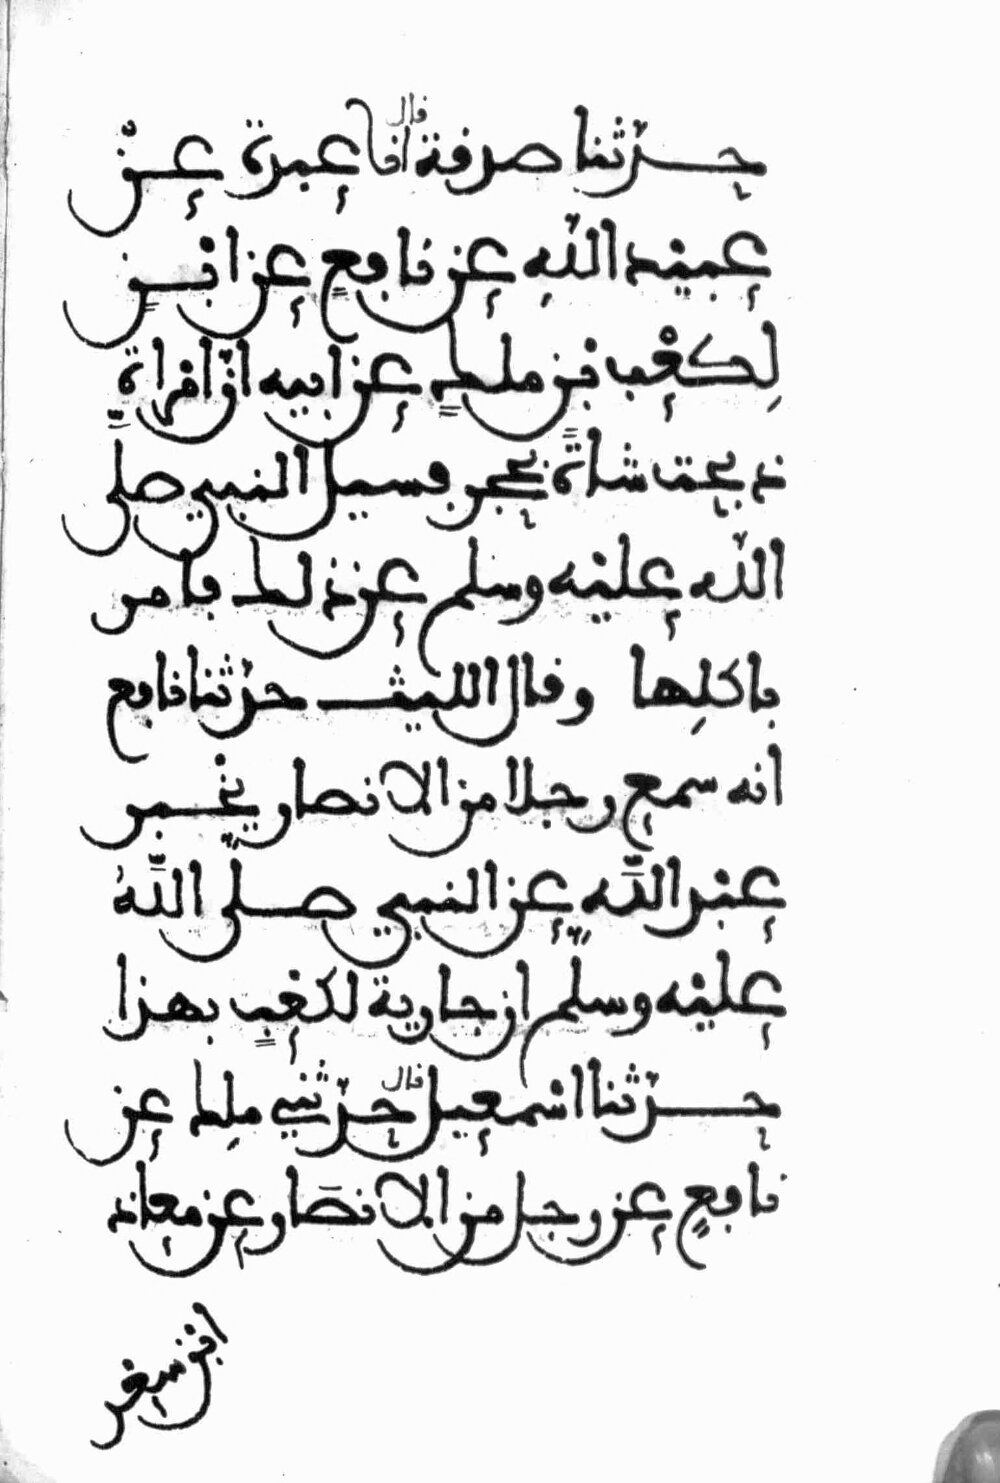 حدثنا صدفة قال انا عبدة عن
عبيد الله عن نافع عن ابن
لكعب بن ملك عن ابيه ان امراة
ذبحت شاة بحجر فسيل النبي صلى
الله عليه وسلم عن ذلك فامر
باكلها وقال الليث حدثنا نافع
انه سمع رجلا من الانصار يخبر
عبد الله عن النبي صلى الله
عليه وسلم ان جارية لكعب بهذا
حدثنا اسمعيل قال حدثني ملك عن
نافع عن رجل من الانصار عن معاذ
ابن سعد